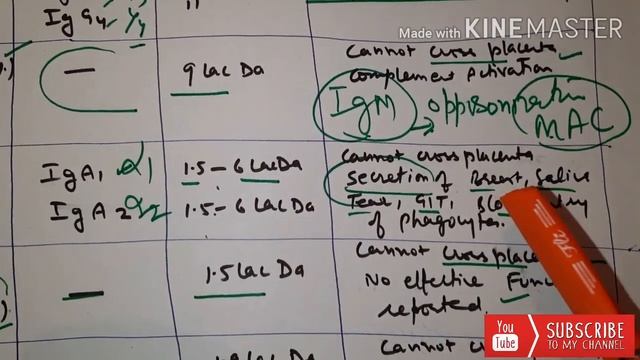 Made with KINEMASTER
IgG4
Cannot cross placenta
9 lac Da
complement Activation
IgM
MAC
Cannot cross placenta
IgA1 α1
1.5 - 6 lac Da
secretion of Breast, Saliva
IgA2 α2
1.5 - 6 lac Da
Tear, GIT,
of phagocytes.
Cannot cross
1.5 lac Da
No effective
reported.
Cannot
You Tube SUBSCRIBE
TO MY CHANNEL